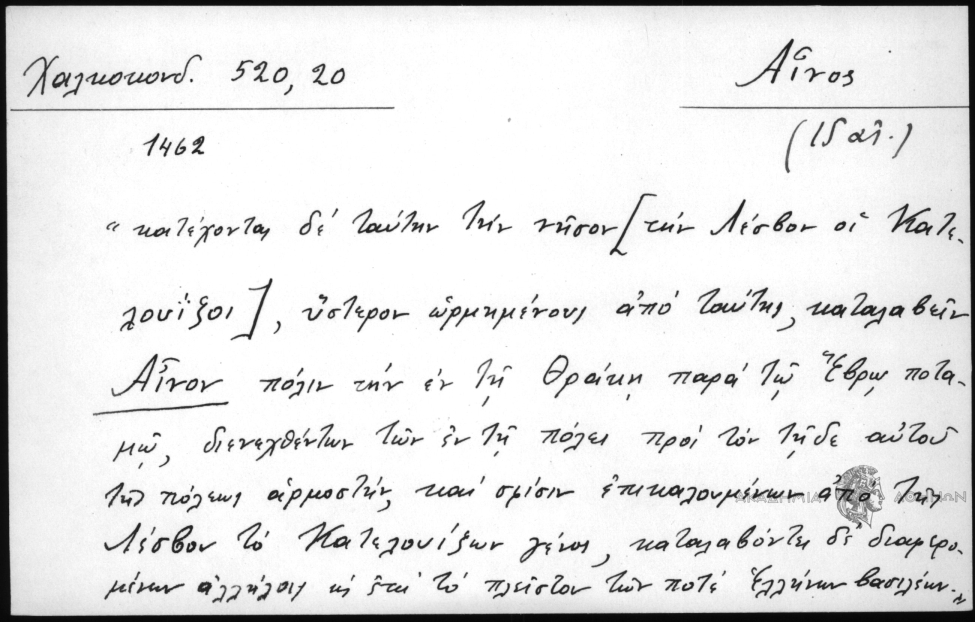 Χαλκοκονδ. 520,20
Αἶνος
1462
(15 αἰ.)
"κατέχοντας δέ ταύτην τήν νῆσον [τήν Λέσβον οἱ Κατε-
λουΐζοι], ὕστερον ὡρμημένους ἀπό ταύτης, καταλαβεῖν
Αἶνον πόλιν τήν ἐν τῇ Θράκῃ παρά τῷ Ἕβρῳ ποτα-
μῷ, διενεχθέντων τῶν ἐν τῇ πόλει πρός τόν τῇδε αὐτοῦ
τῆς πόλεως ἁρμοστήν, καί σφίσιν ἐπικαλουμένων ἀπό τῆς
Λέσβου τό Κατελουΐζων γένος, καταλαβόντες δέ διαφερο-
μένων ἀλλήλοις ὡς ἐπί τό πλεῖστον τῶν ποτέ Ἑλλήνων βασιλέων."
ΑΚΑΔΗΜΙΑ ΑΘΗΝΩΝ